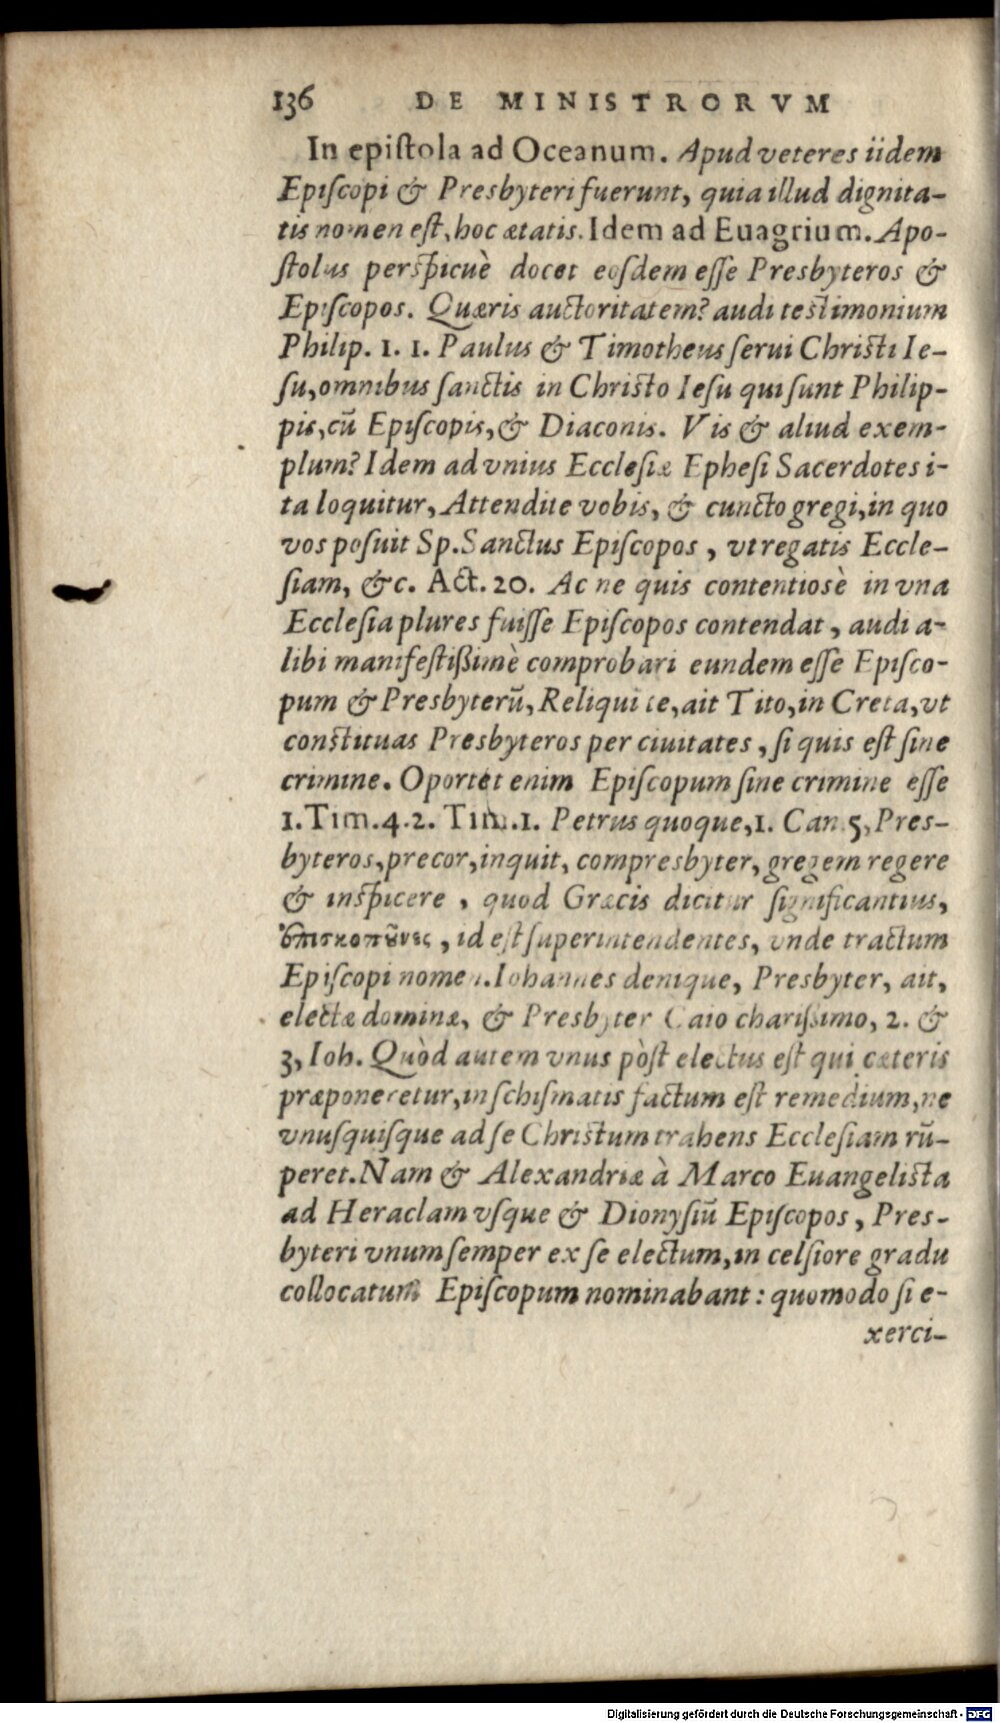 136 DE MINISTRORVM
In epiſtola ad Oceanum. Apud veteres iidem
Epiſcopi & Presbyteri fuerunt, quia illud dignita-
tis nomen eſt, hoc ætatis. Idem ad Euagrium. Apo-
ſtolus perſpicuè docet eoſdem eſſe Presbyteros &
Epiſcopos. Quæris auctoritatem? audi teſtimonium
Philip. 1. 1. Paulus & Timotheus ſerui Chriſti Ie-
ſu, omnibus ſanctis in Chriſto Ieſu qui ſunt Philip-
pis, cū Epiſcopis, & Diaconis. Vis & aliud exem-
plum? Idem ad vnius Eccleſiæ Epheſi Sacerdotes i-
ta loquitur, Attendite vobis, & cuncto gregi, in quo
vos poſuit Sp. Sanctus Epiſcopos, vt regatis Eccle-
ſiam, &c. Act. 20. Ac ne quis contentiosè in vna
Eccleſia plures fuiſſe Epiſcopos contendat, audi a-
libi manifeſtißimè comprobari eundem eſſe Epiſco-
pum & Presbyterū, Reliqui te, ait Tito, in Creta, vt
conſtituas Presbyteros per ciuitates, ſi quis eſt ſine
crimine. Oportet enim Epiſcopum ſine crimine eſſe
1. Tim. 4. 2. Tim. 1. Petrus quoque, 1. Can. 5, Pres-
byteros, precor, inquit, compresbyter, gregem regere
& inſpicere, quod Græcis dicitur ſignificantius,
ἐπισκοποῦντες, id eſt ſuperintendentes, vnde tractum
Epiſcopi nomen. Iohannes denique, Presbyter, ait,
electæ dominæ, & Presbyter Caio chariſsimo, 2. &
3, Ioh. Quòd autem vnus pòſt electus eſt qui cæteris
præponeretur, in ſchiſmatis factum eſt remedium, ne
vnuſquiſque ad ſe Chriſtum trahens Eccleſiam rū-
peret. Nam & Alexandriæ à Marco Euangeliſta
ad Heraclam vſque & Dionyſiū Epiſcopos, Pres-
byteri vnum ſemper ex ſe electum, in celſiore gradu
collocatum Epiſcopum nominabant: quomodo ſi e-
xerci-
Digitalisierung gefördert durch die Deutsche Forschungsgemeinschaft - DFG